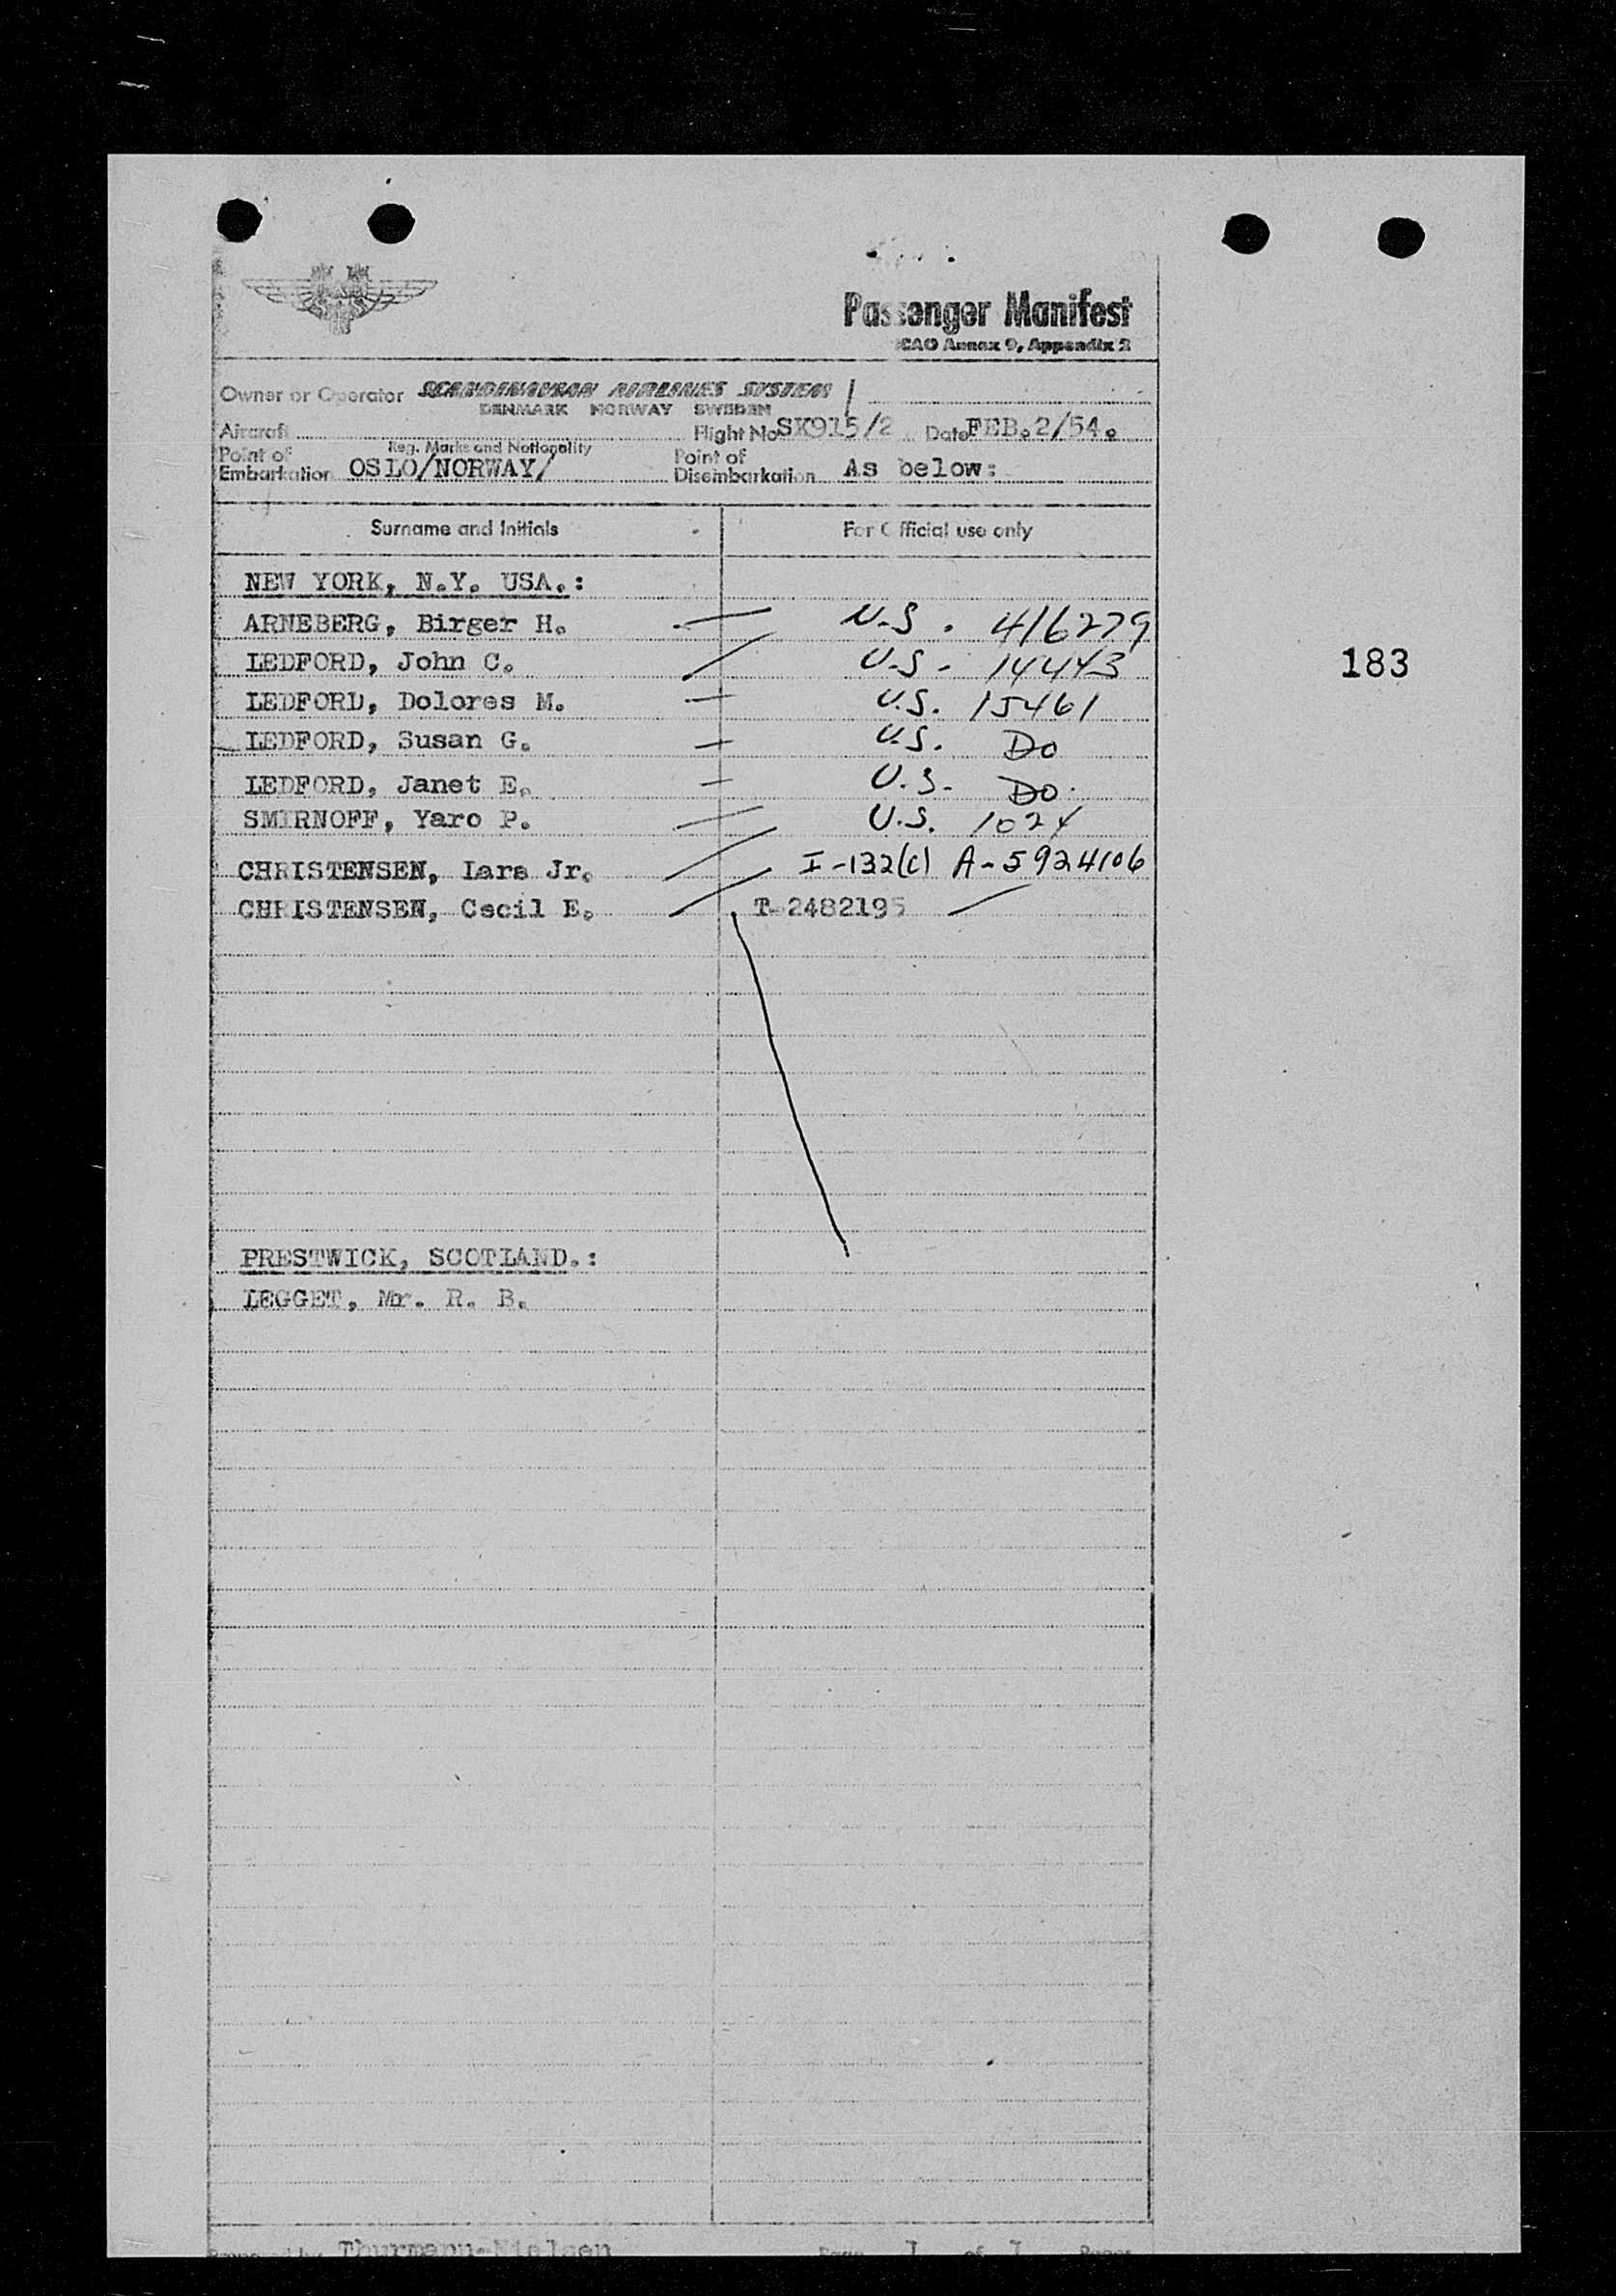 Passenger Manifest
ICAO Annex 9, Appendix 2
Owner or Operator SCANDINAVIAN AIRLINES SYSTEM
DENMARK NORWAY SWEDEN
Aircraft Flight No SK915/2 Date FEB. 2/54.
Reg. Marks and Nationality
Point of Embarkation OSLO/NORWAY/ Point of Disembarkation As below:
Surname and Initials For Official use only
NEW YORK, N.Y. USA.:
ARNEBERG, Birger H. U.S. 416279
LEDFORD, John C. U.S- 14443
183
LEDFORD, Dolores M. U.S. 15461
LEDFORD, Susan G. U.S. Do
LEDFORD, Janet E. U.S- Do.
SMIRNOFF, Yaro P. U.S. 1024
CHRISTENSEN, Lars Jr. I-132(c) A-5924106
CHRISTENSEN, Cecil E. T-2482195
PRESTWICK, SCOTLAND.:
LEGGET, Mr. R. B.
Prepared by Thurmann-Nielsen Page 1 of 1 Pages